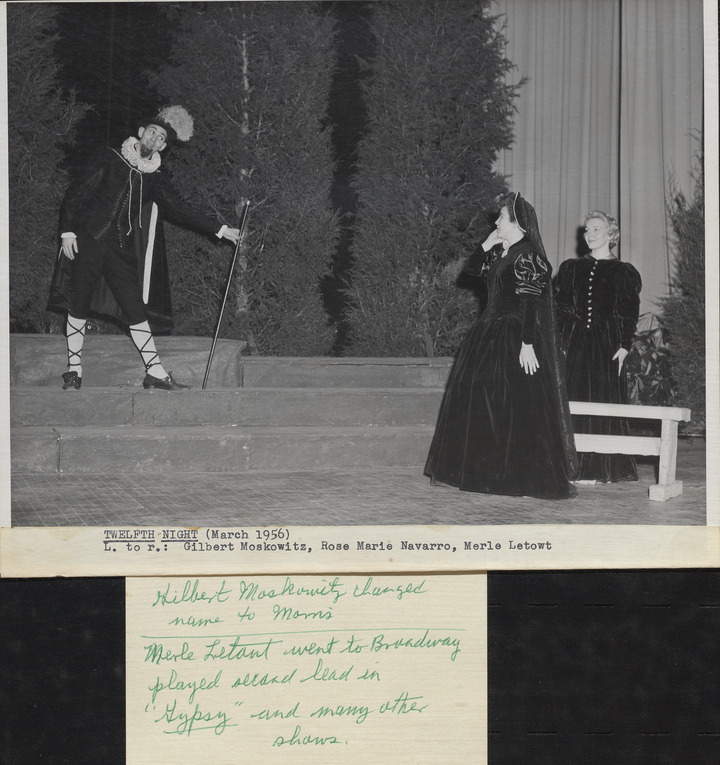 TWELFTH NIGHT (March 1956)
L. to r.: Gilbert Moskowitz, Rose Marie Navarro, Merle Letowt
Gilbert Moskowitz changed
name to Morris
Merle Letowt went to Broadway
played second lead in
"Gypsy" and many other
shows.